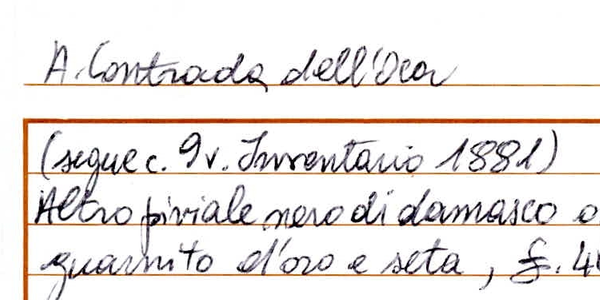 A. Contrada dell'Oca
(segue c. 9v. Inventario 1881)
Altro piviale nero di damasco
guarnito d'oro e seta, £. 4